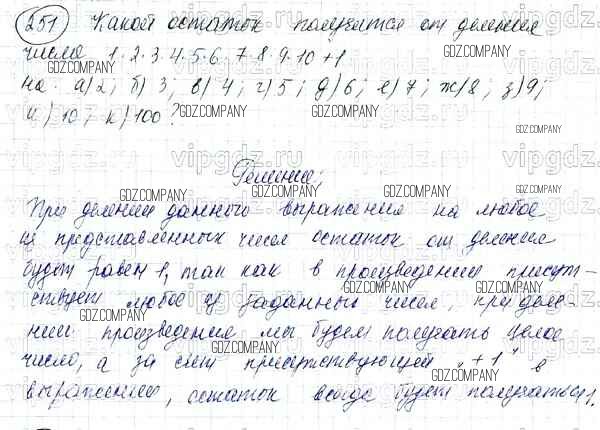 251 Какой остаток получится от деления
числа 1·2·3·4·5·6·7·8·9·10+1
на: а)2; б)3; в)4; г)5; д)6; е)7; ж)8; з)9;
и)10; к)100?
Решение:
При делении данного выражения на любое
из представленных чисел остаток от деления
будет равен 1, так как в произведении присут-
ствует любое из заданных чисел, при деле-
нии произведения мы будем получать целое
число, а за счет присутствующей "+1" в
выражении, остаток всегда будет получаться 1.